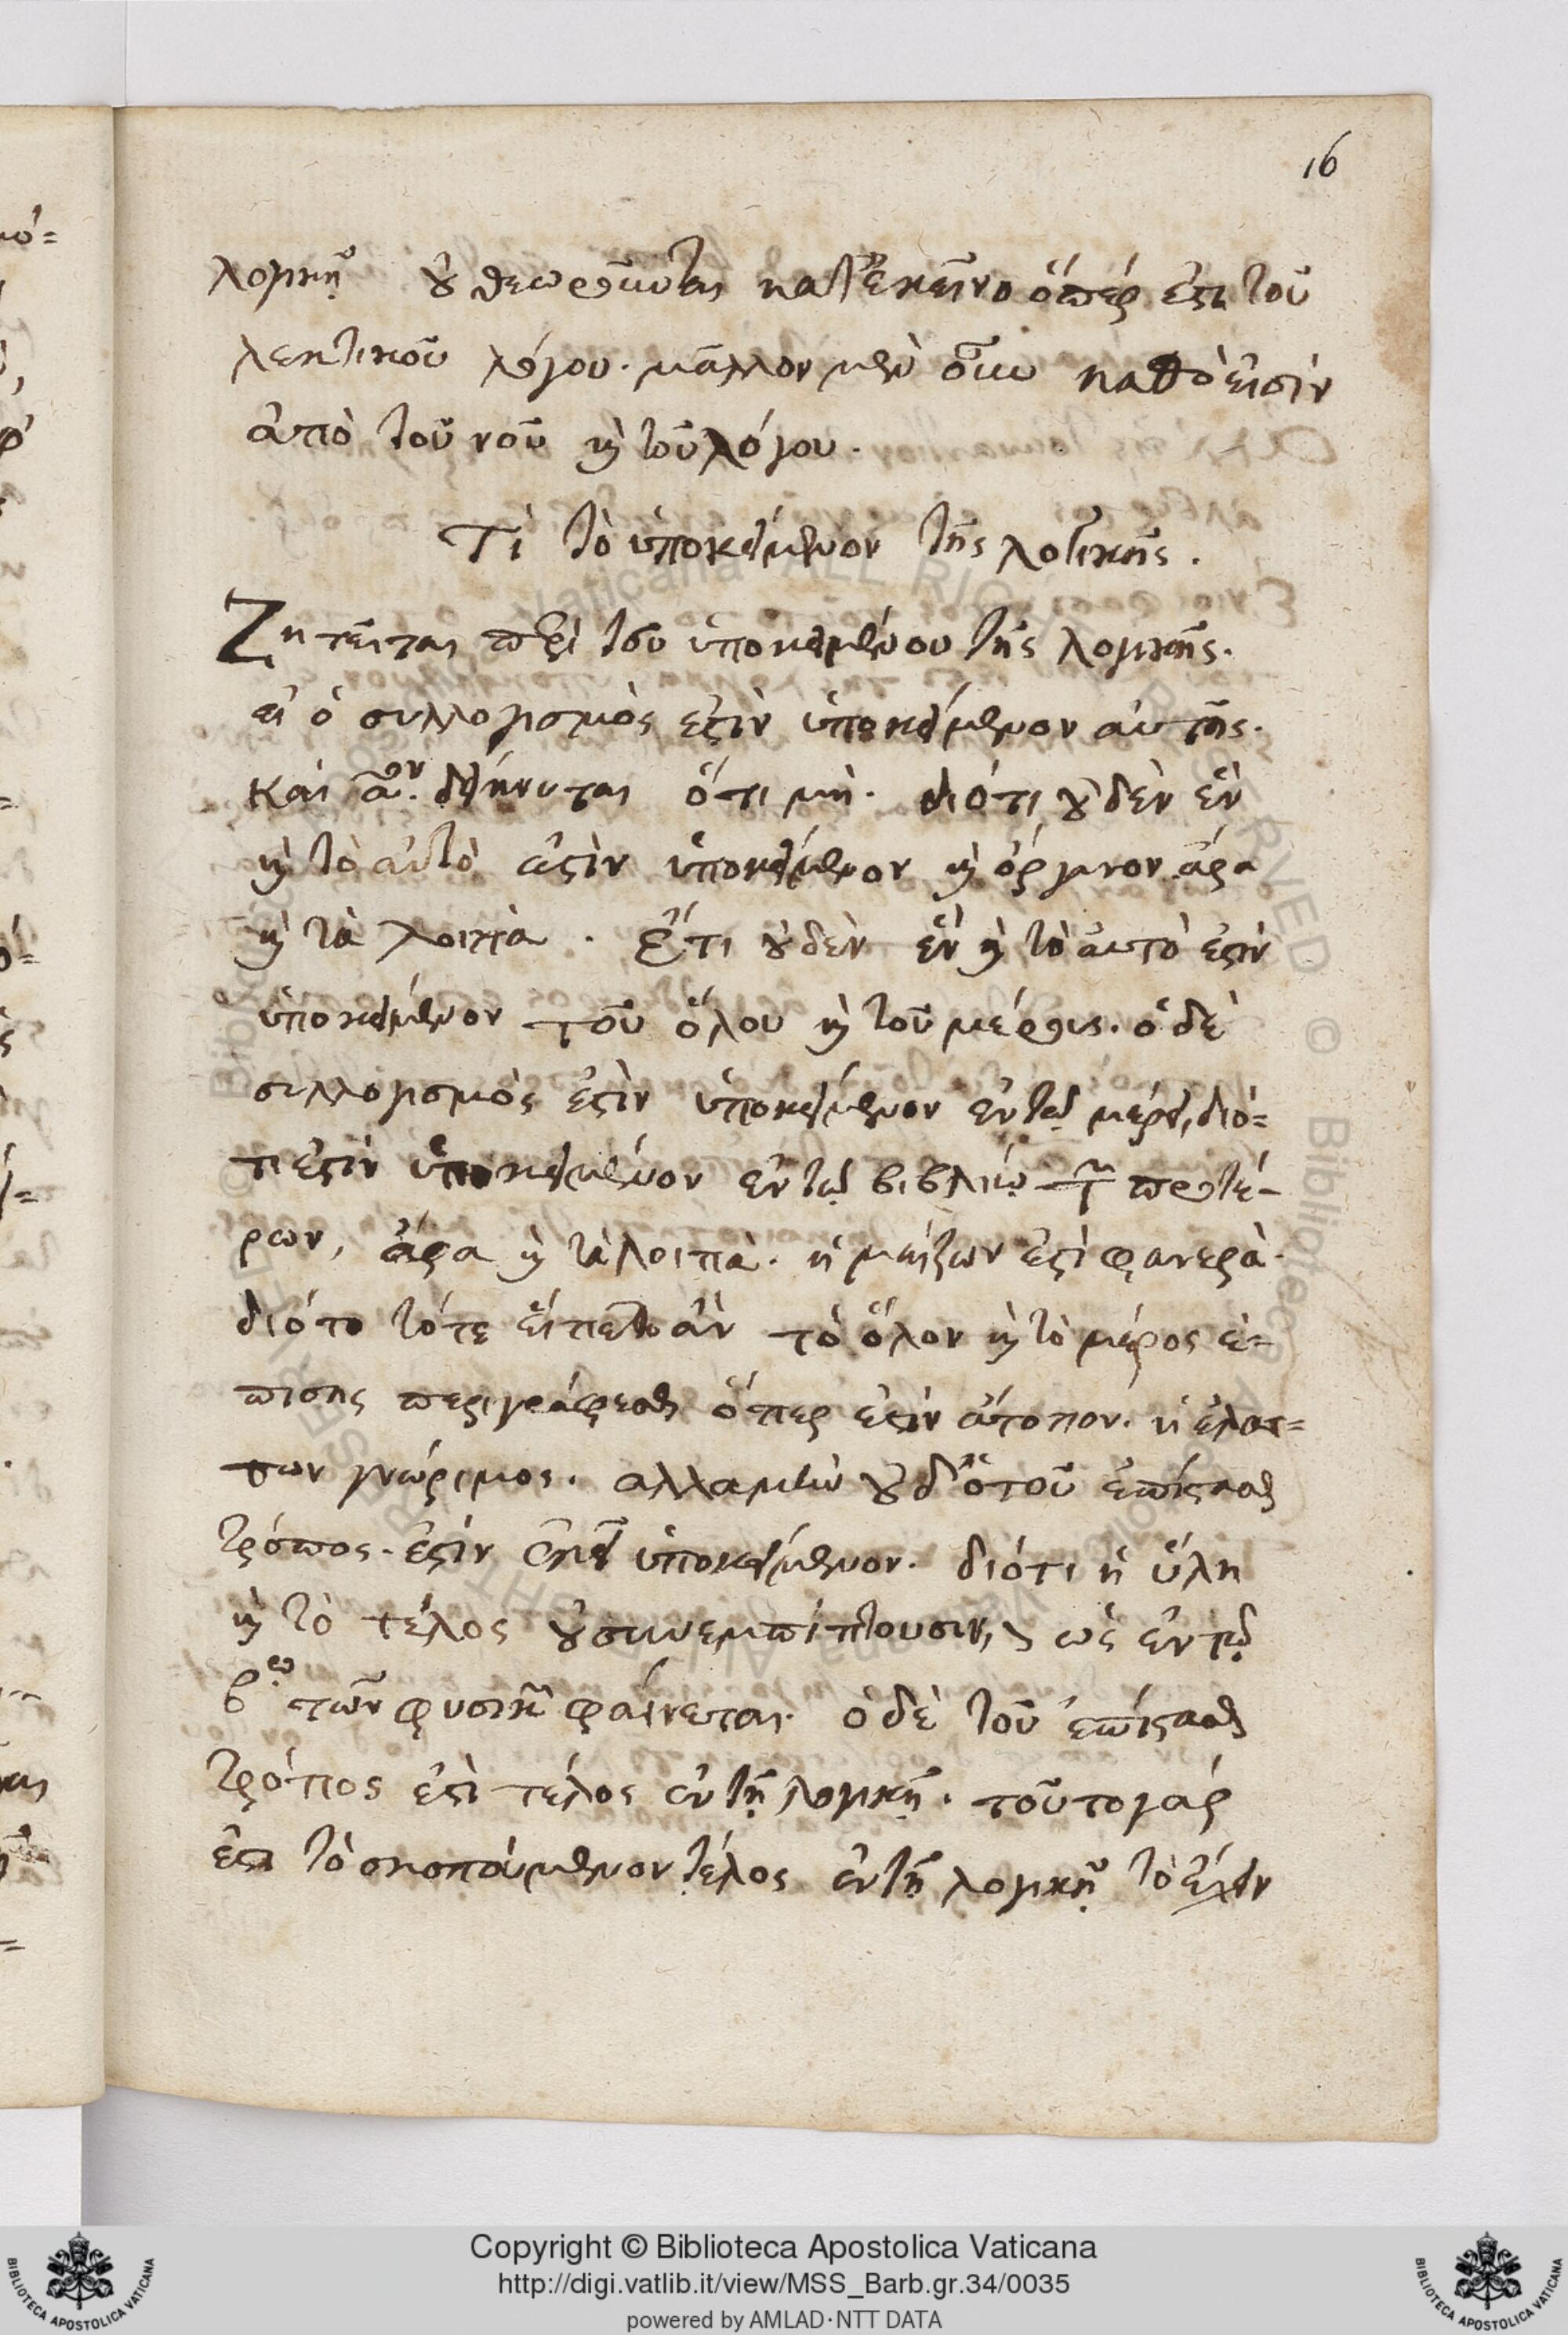 16
λογικῇ οὐ θεωροῦνται κατ' ἐκεῖνο ὅπερ ἐστὶ τοῦ
λεκτικοῦ λόγου. μᾶλλον μὲν οὕτω καθὸ εἰσὶν
ἀπὸ τοῦ νοῦ καὶ τοῦ λόγου.
Τὶ τὸ ὑποκείμενον τῆς λογικῆς.
Ζητεῖται περὶ τοῦ ὑποκειμένου τῆς λογικῆς.
εἰ ὁ συλλογισμὸς ἐστὶν ὑποκείμενον αὐτῆς.
Καὶ αον. δείκνυται ὅτι μὴ. διότι οὐδὲν ἓν
καὶ τὸ αὐτὸ ἐστὶν ὑποκείμενον καὶ ὄργανον ἄρα
καὶ τὰ λοιπὰ. Ἔτι οὐδὲν ἓν καὶ τὸ αὐτὸ ἐστὶν
ὑποκείμενον τοῦ ὅλου καὶ τοῦ μέρους. ὁ δὲ
συλλογισμὸς ἐστὶν ὑποκείμενον ἐν τῷ μέρει, διό=
τι ἐστὶν ὑποκείμενον ἐν τῷ βιβλίῳ τῶν προτέ-
ρων, ἄρα καὶ τὰ λοιπὰ. ἡ μείζων ἐστὶ φανερὰ.
διότι τότε εἵπετο ἂν τὸ ὅλον καὶ τὸ μέρος ἐ-
πίσης περιγράφεσθαι ὅπερ ἐστὶν ἄτοπον. ἡ ἐλατ=
των γνώριμος. αλλαμὴν οὐδ' ὁ τοῦ ἐπίστασθαι
τρόπος. ἐστὶν ἐκεῖ ὑποκείμενον. διότι ἡ ὕλη
καὶ τὸ τέλος οὐ συνεμπίπτουσιν, ὡς ἐν τῷ
βῳ τῶν φυσικῶν φαίνεται. ὁ δὲ τοῦ ἐπίστασθαι
τρόπος ἐστὶ τέλος ἐν τῇ λογικῇ. τοῦτο γάρ
ἐστι τὸ σκοπούμενον τέλος ἐν τῇ λογικῇ τὸ ἔχειν
Copyright © Biblioteca Apostolica Vaticana
http://digi.vatlib.it/view/MSS_Barb.gr.34/0035
powered by AMLAD·NTT DATA